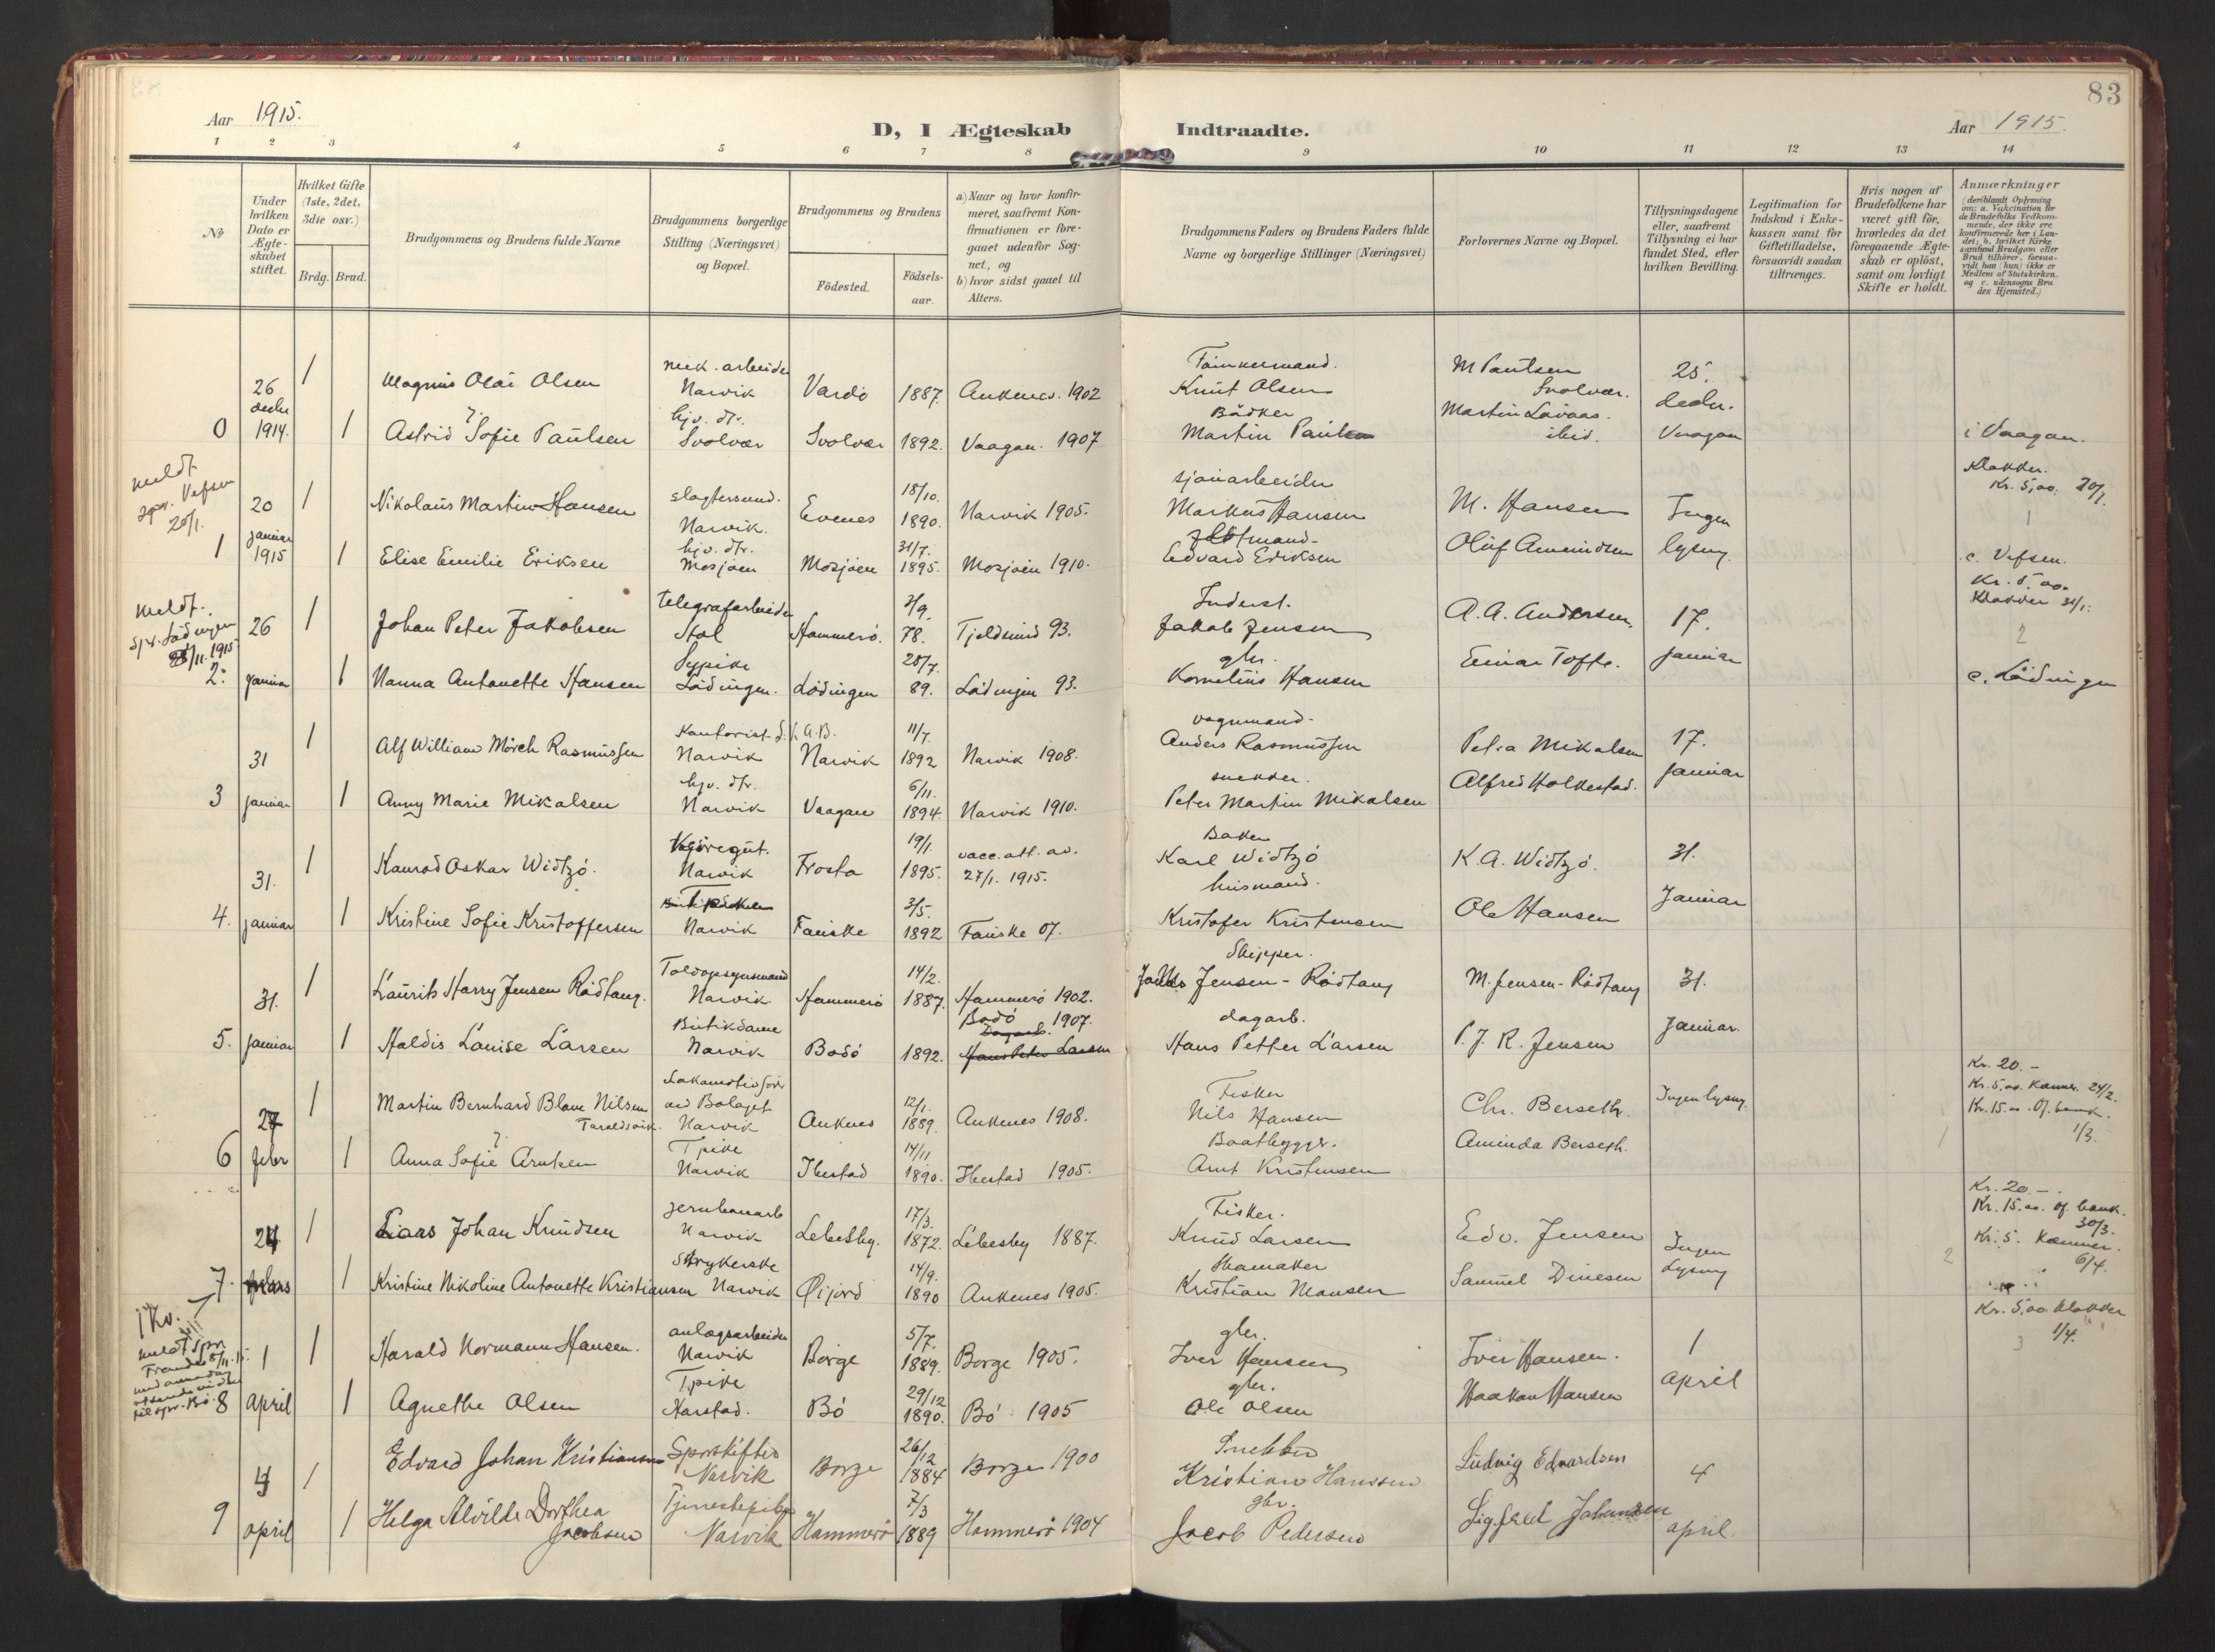 83
Aar 1915.
D, I Ægteskab Indtraadte.
Aar 1915.
1 2 3 4 5 6 7 8 9 10 11 12 13 14
№
Under hvilken Dato er Ægteskabet stiftet.
Hvilket Gifte (1ste, 2det, 3die osv.)
Brdg. Brud.
Brudgommens og Brudens fulde Navne
Brudgommens borgerlige Stilling (Næringsvei) og Bopæl.
Brudgommens og Brudens
Födested.
Födsels-aar.
a) Naar og hvor konfir-
meret, saafremt Kon-
firmationen er fore-
gaaet udenfor Sog-
net, og
b) hvor sidst gaaet til
Alters.
Brudgommens Faders og Brudens Faders fulde
Navne og borgerlige Stillinger (Næringsvei)
Forlovernes Navne og Bopæl.
Tillysningsdagene
eller, saafremt
Tillysning ei har
fundet Sted, efter
hvilken Bevilling.
Legitimation for
Indskud i Enke-
kassen samt for
Giftetilladelse,
forsaavidt saadan
tiltrænges.
Hvis nogen af
Brudefolkene har
været gift för,
hvorledes da det
foregaaende Ægte-
skab er oplöst,
samt om lovligt
Skifte er holdt.
Anmærkninger
(deriblandt Oplysning
om: a. Vakcination for
de Brudefolks Vedkom-
mende, der ikke ere
konfirmerede her i Lan-
det; b. hvilket Kirke-
samfund Brudgom eller
Brud tilhörer, forsaa-
vidt han (hun) ikke er
Medlem af Statskirken,
og c. udensogns Bru-
des Hjemsted.)
0 26 decbr 1914.
1 Magnus Olai Olsen
mek. arbeider Narvik Vardö 1887. Ankenes. 1902
Knut Olsen
M Paulsen Svolvær.
25. decbr.
1 Astrid Sofie Paulsen
hjv. dtr. Svolvær Svolvær 1892. Vaagan. 1907
Bödker
Martin Paulsen
ibid.
Vaagan
i Vaagan.
meldt
Vefsen
20/1.
1 20 januar 1915
1 Nikolaus Martin Hansen
Narvik. Evenes 18/10. 1890. Narvik 1905.
sjauarbeider
Markus Hansen
M. Hansen
Ingen lysing.
Klokker.
Kr. 5,00. 30/1.
1
1 Elise Emilie Eriksen
hjv. dtr. Mosjöen Mosjöen 31/7. 1895. Mosjöen 1910.
Edvard Eriksen
Oluf Amundsen
c. Vefsen.
meldt.
spr. Lödingen
1915
2. 26 januar
1 Johan Peter Jakobsen
telegrafarbeider Hammerö. 3/9. 78. Tjeldsund 93.
Inderst.
Jakob Jensen
A. A. Andersen.
17. januar
Kr. 5.00.
Klokker 31/1.
2
1 Nanna Antonette Hansen
Sypike Lödingen. Lödingen 28/7. 89. Lödingen 93.
gbr.
Kornelius Hansen
Einar Tofte.
c. Lödingen
3 31 januar
1 Alf William Mörch Rasmussen
Kontorist Narvik Narvik 11/7. 1892 Narvik 1908.
vognmand.
Anders Rasmussen
Petra Mikalsen
17. januar
1 Anny Marie Mikalsen
hjv. dtr. Narvik Vaagan 6/11. 1894. Narvik 1910.
snekker.
Peter Martin Mikalsen
Alfred Holkestad.
4. 31. januar
1 Konrad Oskar Widtzö.
Kjöregut. Narvik Frosta 19/1. 1895. vacc. att. av. 27/1. 1915.
Baker
Karl Widtzö
K. A. Widtzö.
31. Januar
1 Kristine Sofie Kristoffersen
Narvik Fauske 3/5. 1892 Fauske 07.
husmand.
Kristofer Kristensen
Ole Hansen
5. 31. januar
1 Laurits Harry Jensen Rödtang.
Toldopsynsmand Narvik Hammerö 14/2. 1887. Hammerö 1902.
Skipper.
Jensen - Rödtang
M. Jensen - Rödtang
31. Januar.
1 Haldis Louise Larsen
Butikdame Narvik Bodö 1892. Bodö 1907.
Hans Peter Larsen
dagarb.
Hans Petter Larsen
P. J. R. Jensen
6 27 febr
1 Martin Bernhard Blom Nilsen
Taraldsvik.
Narvik Ankenes 12/1. 1889. Ankenes 1908.
Fisker
Nils Hansen
Chr. Berseth.
Ingen lysing.
Kr. 20.-
Kr. 5,00. Kæmner. 24/2.
Kr. 15.00. Of. bank.
1/3.
1
1 Anna Sofie Arntsen
Tpike Narvik Ibestad 14/11 1890. Ibestad 1905.
Baatbygger.
Arnt Kristensen
Aminda Berseth.
7. 24
1 Lars Johan Knudsen
jernbanearb Narvik Lebesby. 17/3. 1872. Lebesby 1887.
Fisker.
Knud Larsen
Edv. Jensen
Ingen Lysing
Kr. 20.-.
Kr. 15.00. of. bank.
30/3.
Kr. 5. Kæmner.
6/4.
2
1 Kristine Nikoline Antonette Kristiansen
Strykerske Narvik Öijord 14/9. 1890 Ankenes 1905.
Skomaker
Kristian Monsen
Samuel Dinesen
meldt spr
8 1 april
1 Harald Normann Hansen.
anlægsarbeider Narvik Borge 5/7. 1889. Borge 1905.
gbr.
Iver Hansen
Iver Hansen.
1 april
Kr. 5,00 Klokker
1/4.
3
1 Agnethe Olsen
Tpike Harstad. Bö 29/12 1890. Bö 1905
gbr.
Ole Olsen
Haakon Hansen
9 4 april
1 Edvard Johan Kristiansen
Narvik Borge 26/12 1884 Borge 1900
Snekker
Kristian Hanssen
Ludvig Edvardsen
4 april.
1 Helga Alvilde Dorthea Jacobsen
Tjenestepike Narvik Hammerö 7/3 1889 Hammerö 1904
gbr.
Jacob Pedersen
Sigfred Johansen